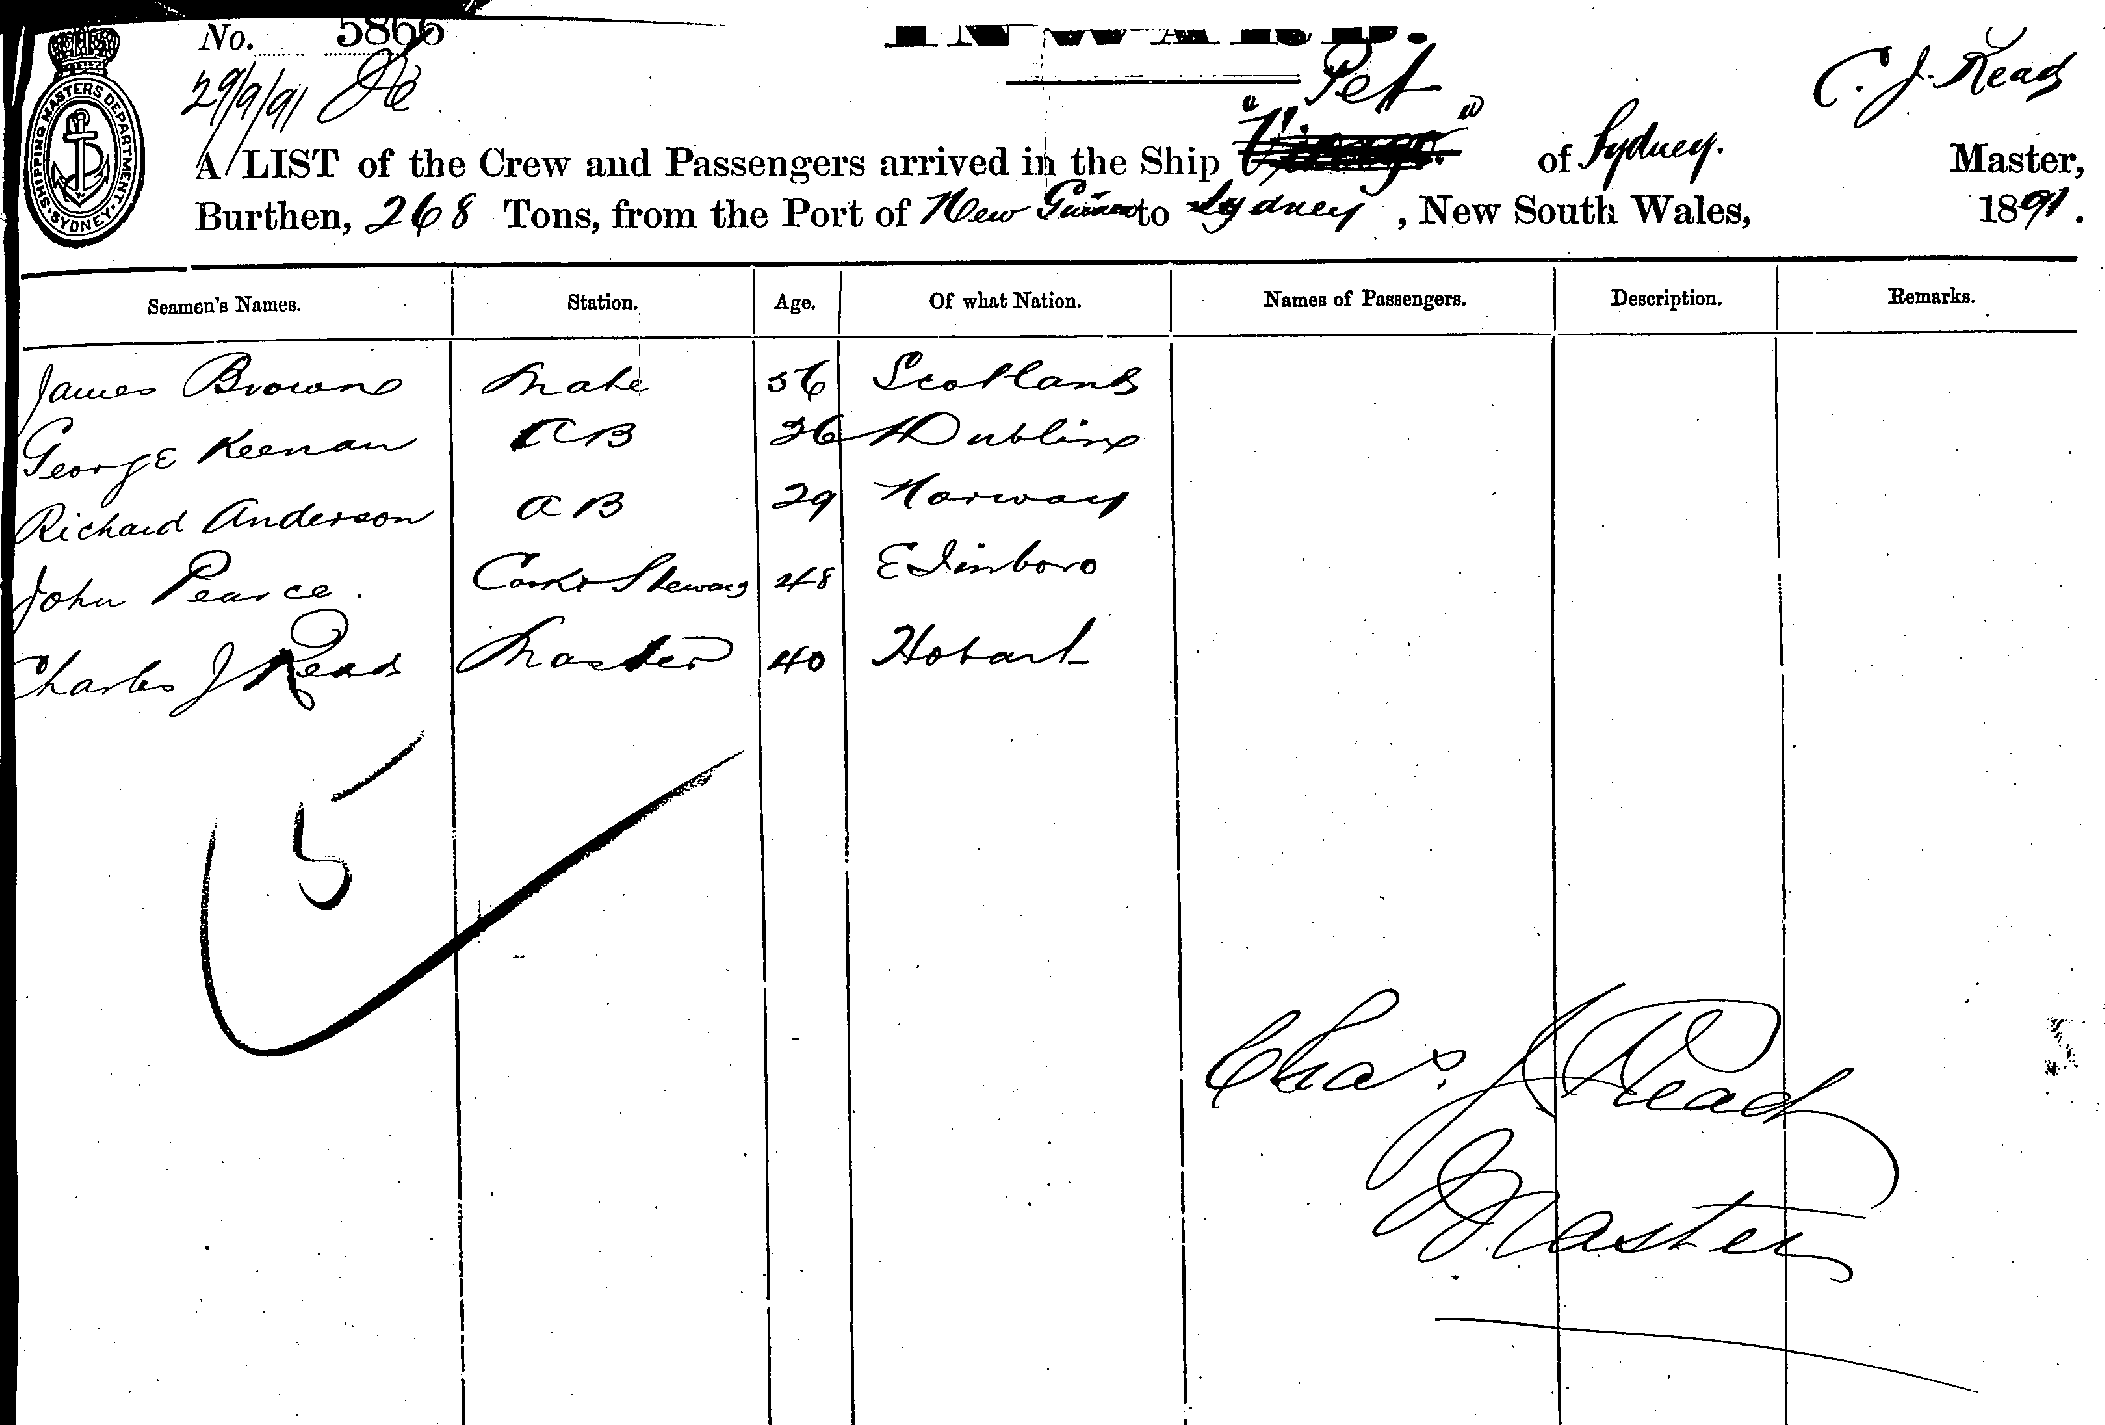 No. 5866
INWARD.
29/9/91
SHIPPING MASTERS DEPARTMENT. SYDNEY.
Pet
C. J. Read
A LIST of the Crew and Passengers arrived in the Ship " " of Sydney. Master,
Burthen, 268 Tons, from the Port of New Guinea to Sydney, New South Wales, 1891.
Seamen's Names. Station. Age. Of what Nation. Names of Passengers. Description. Remarks.
James Brown Mate 56 Scotland
George Keenan AB 26 Dublin
Richard Anderson AB 29 Norway
John Pearce. Cook & Steward 48 Edinboro
Charles J Read Master 40 Hobart
5
Chas. J Read
Master